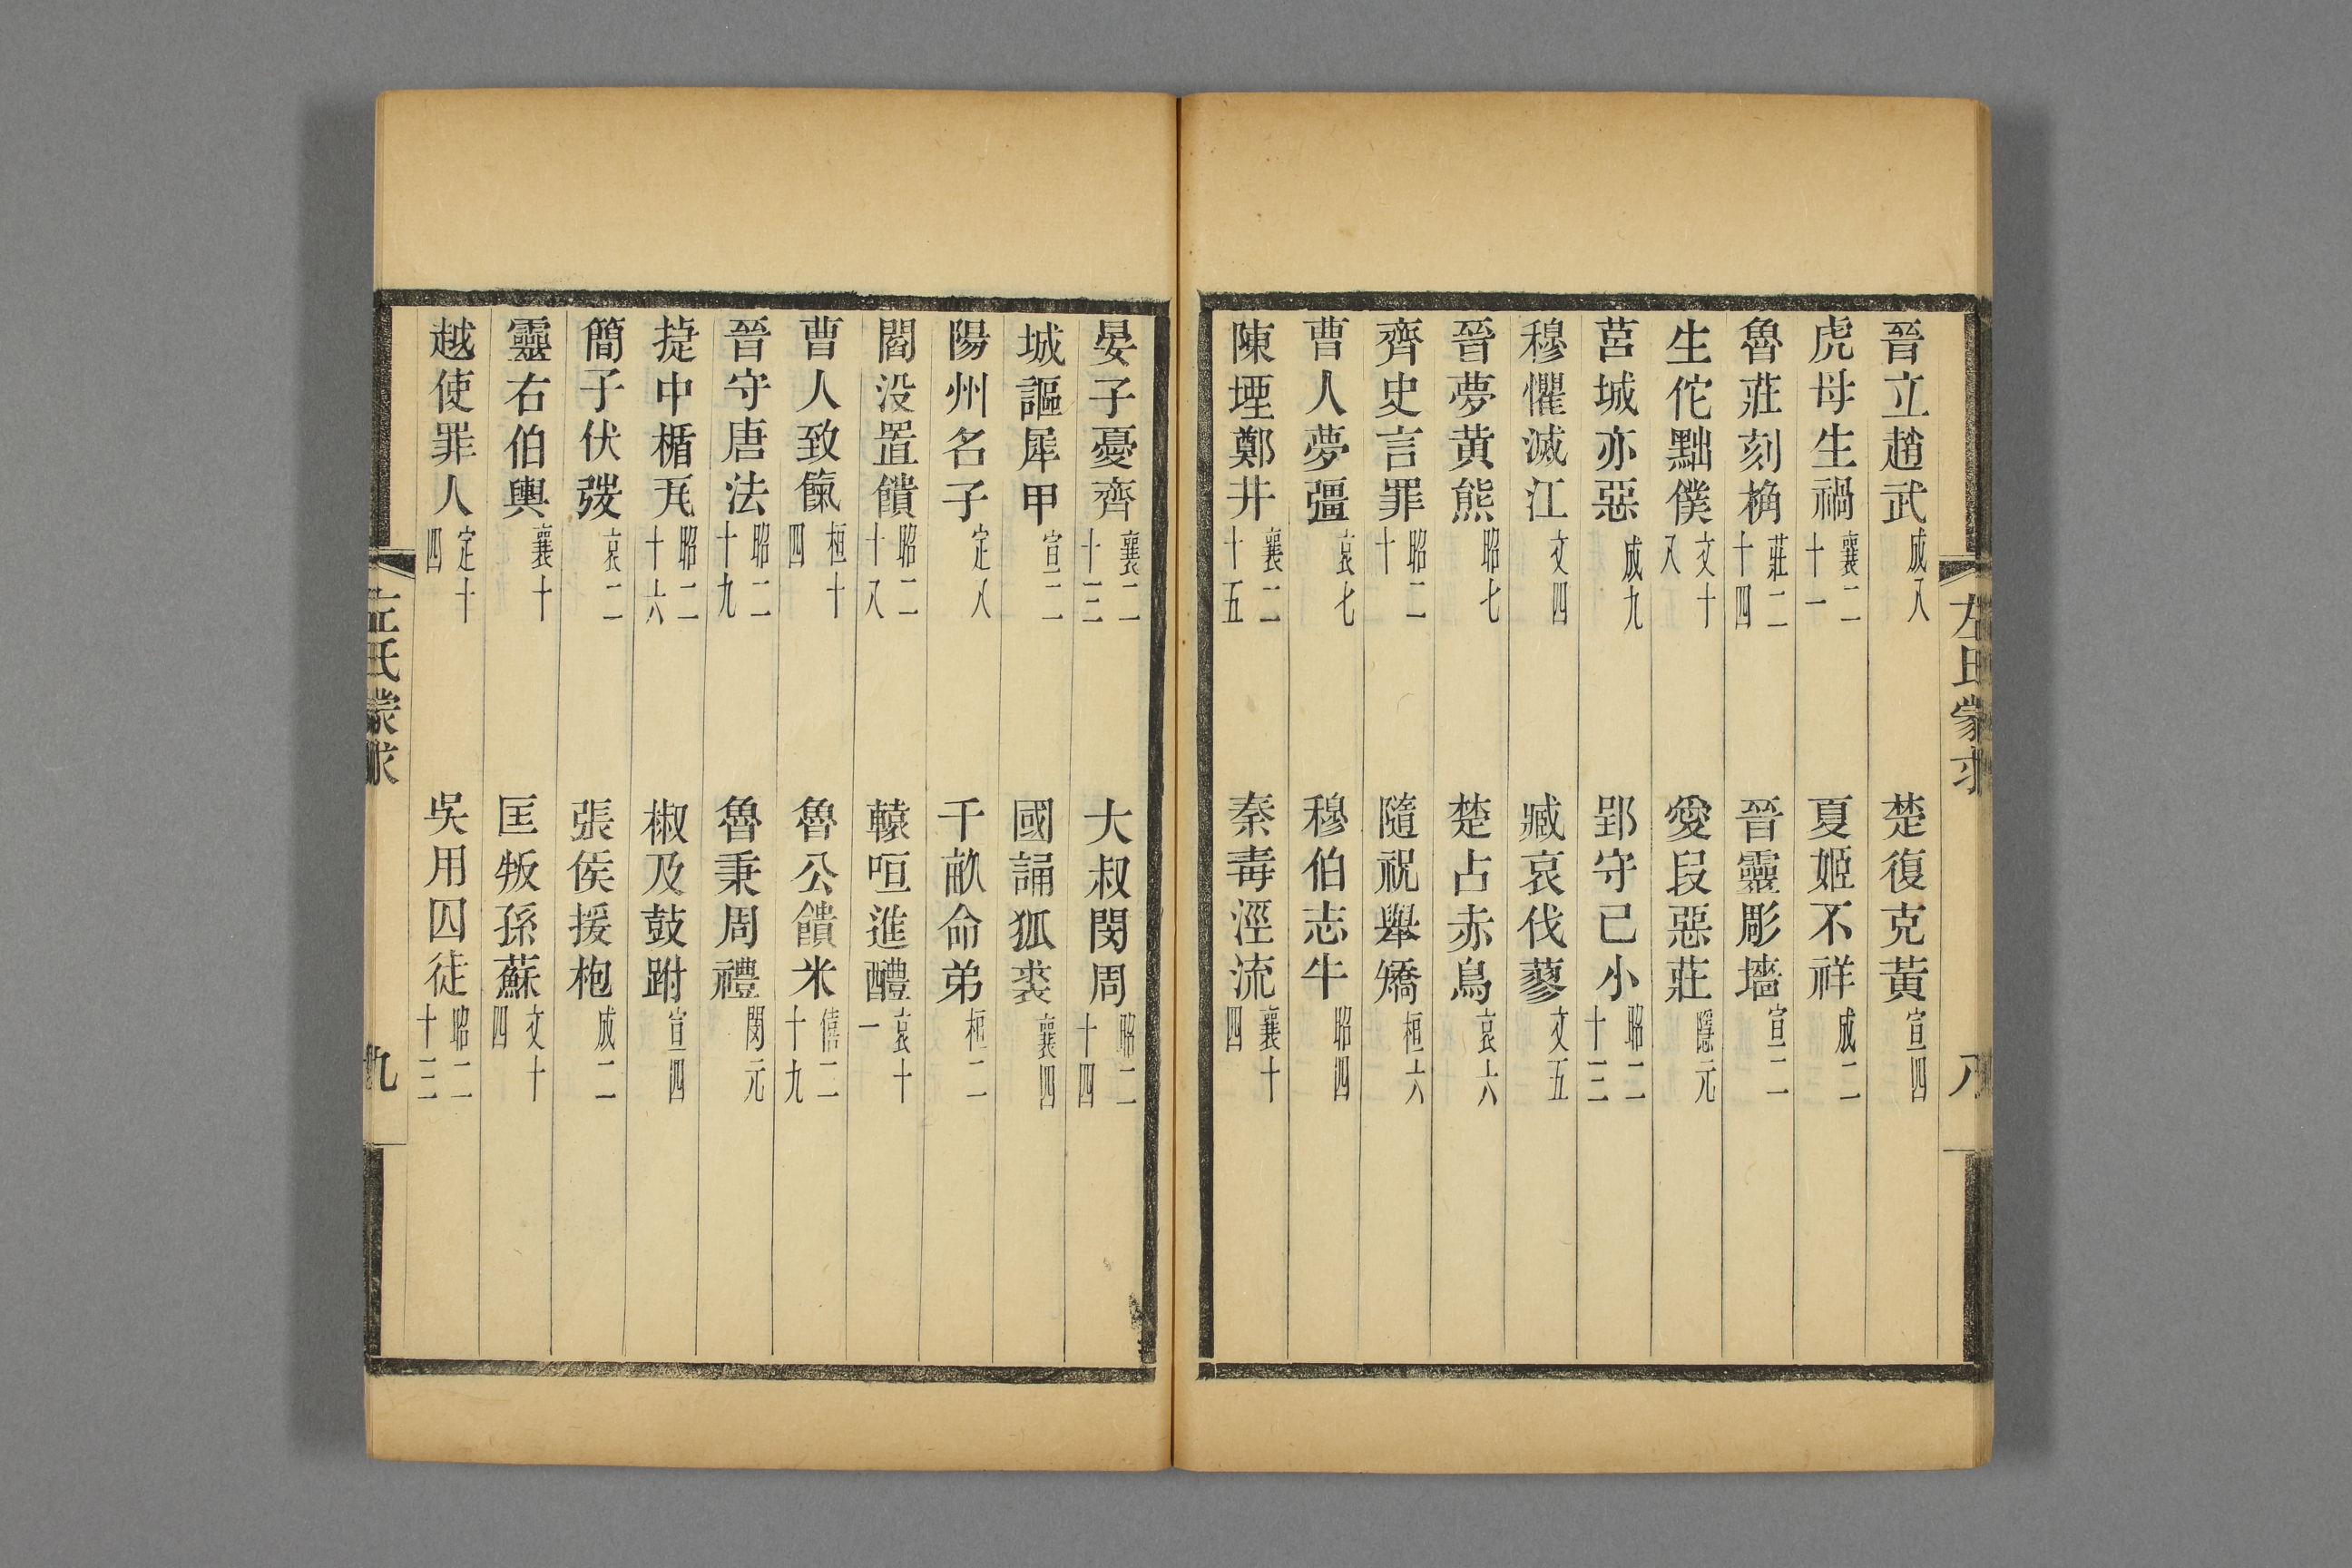 左氏蒙求
八
晉立趙武成八 楚復克黃宣四
虎母生禍襄二十一 夏姬不祥成二
魯莊刻桷莊二十四 晉靈彫墻宣二
生佗黜僕文十八 愛段惡莊隱元
莒城亦惡成九 郢守已小昭二十三
穆懼滅江文四 臧哀伐蓼文五
晉夢黃熊昭七 楚占赤鳥哀六
齊史言罪昭二十 隨祝舉矯桓六
曹人夢彊哀七 穆伯志牛昭四
陳堙鄭井襄二十五 秦毒涇流襄十四
晏子憂齊襄二十三 大叔閔周昭二十四
城謳犀甲宣二 國誦狐裘襄四
陽州名子定八 千畝命弟桓二
閻沒置饋昭二十八 轅咺進醴哀十一
曹人致餼桓十四 魯公饋米僖二十九
晉守唐法昭二十九 魯秉周禮閔元
捷中楯瓦昭二十六 椒及鼓跗宣四
簡子伏弢哀二 張侯援枹成二
靈右伯輿襄十 匡叛孫蘇文十四
越使罪人定十四 吳用囚徒昭二十三
左氏蒙求
九